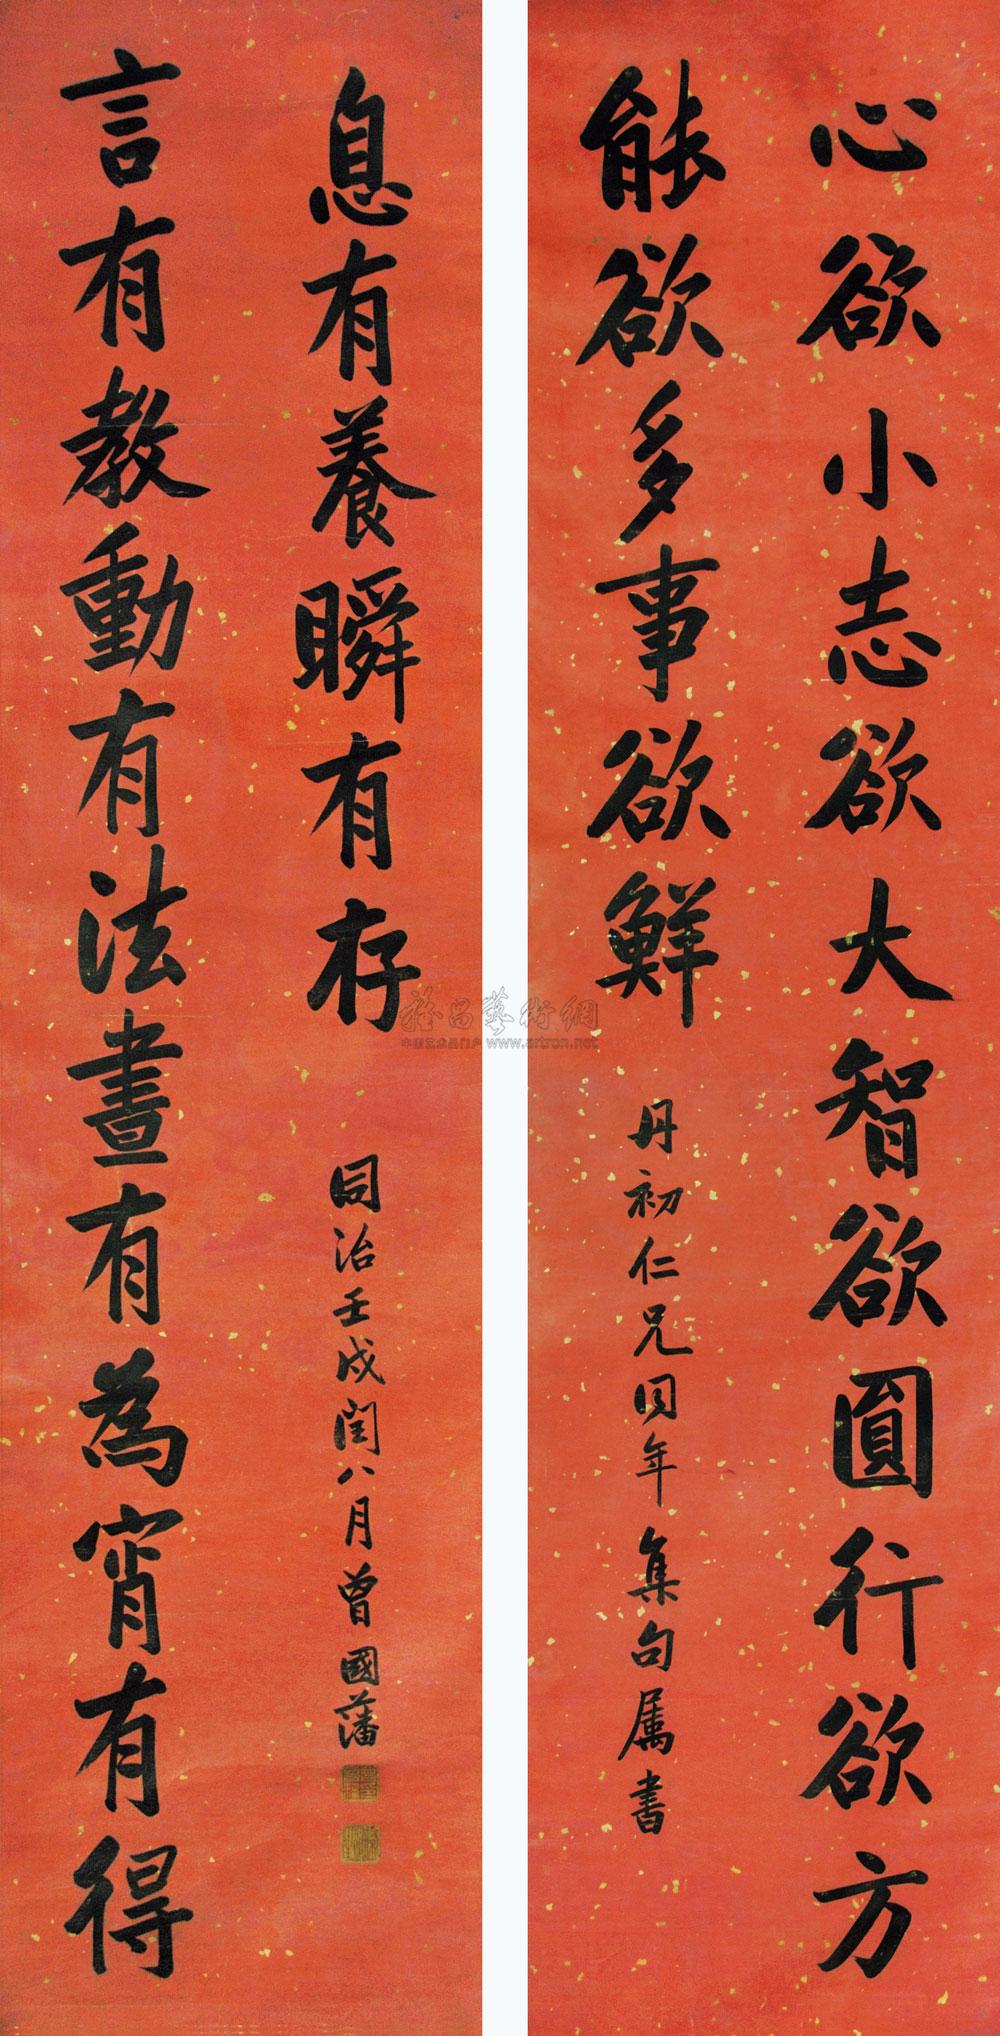 心欲小志欲大智欲圓行欲方
能欲多事欲鮮
丹初仁兄同年集句属書
言有教動有法晝有為宵有得
息有養瞬有存
同治壬戌閏八月曾國藩
雅昌藝術網
中国艺术品门户 www.artron.net